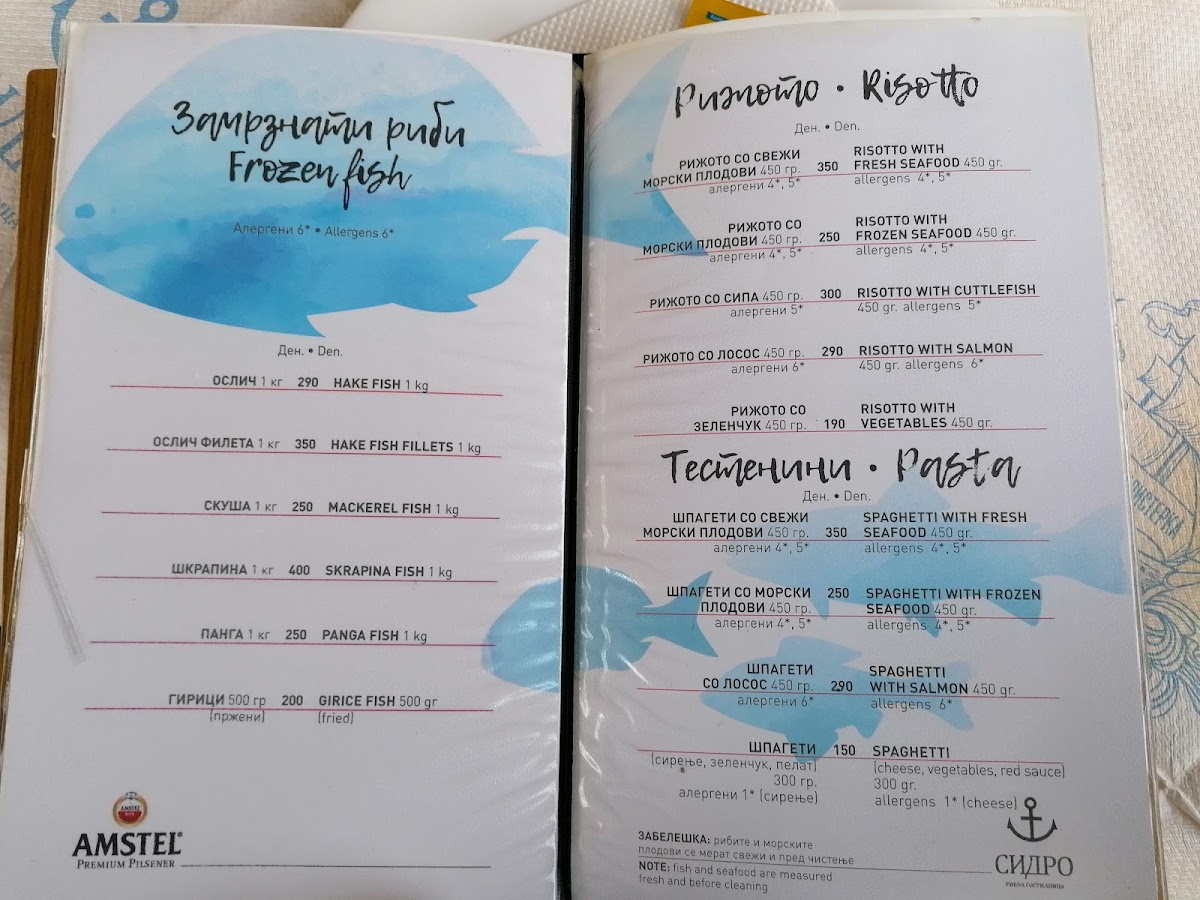 Замрзнати риби
Frozen fish
Алергени 6* • Allergens 6*
Ден. • Den.
ОСЛИЧ 1 кг 290 HAKE FISH 1 kg
ОСЛИЧ ФИЛЕТА 1 кг 350 HAKE FISH FILLETS 1 kg
СКУША 1 кг 250 MACKEREL FISH 1 kg
ШКРАПИНА 1 кг 400 SKRAPINA FISH 1 kg
ПАНГА 1 кг 250 PANGA FISH 1 kg
ГИРИЦИ 500 гр 200 GIRICE FISH 500 gr
(пржени) (fried)
AMSTEL
AMSTEL
PREMIUM PILSENER
Рижото • Risotto
Ден. • Den.
РИЖОТО СО СВЕЖИ RISOTTO WITH
МОРСКИ ПЛОДОВИ 450 гр. 350 FRESH SEAFOOD 450 gr.
алергени 4*, 5* allergens 4*, 5*
РИЖОТО СО RISOTTO WITH
МОРСКИ ПЛОДОВИ 450 гр. 250 FROZEN SEAFOOD 450 gr.
алергени 4*, 5* allergens 4*, 5*
РИЖОТО СО СИПА 450 гр. 300 RISOTTO WITH CUTTLEFISH
алергени 5* 450 gr. allergens 5*
РИЖОТО СО ЛОСОС 450 гр. 290 RISOTTO WITH SALMON
алергени 6* 450 gr. allergens 6*
РИЖОТО СО RISOTTO WITH
ЗЕЛЕНЧУК 450 гр. 190 VEGETABLES 450 gr.
Тестенини • Pasta
Ден. • Den.
ШПАГЕТИ СО СВЕЖИ SPAGHETTI WITH FRESH
МОРСКИ ПЛОДОВИ 450 гр. 350 SEAFOOD 450 gr.
алергени 4*, 5* allergens 4*, 5*
ШПАГЕТИ СО МОРСКИ 250 SPAGHETTI WITH FROZEN
ПЛОДОВИ 450 гр. SEAFOOD 450 gr.
алергени 4*, 5* allergens 4*, 5*
ШПАГЕТИ SPAGHETTI
СО ЛОСОС 450 гр. 290 WITH SALMON 450 gr.
алергени 6* allergens 6*
ШПАГЕТИ 150 SPAGHETTI
(сирење, зеленчук, пелат) (cheese, vegetables, red sauce)
300 гр. 300 gr.
алергени 1* (сирење) allergens 1* (cheese)
ЗАБЕЛЕШКА: рибите и морските
плодови се мерат свежи и пред чистење
NOTE: fish and seafood are measured
fresh and before cleaning
СИДРО
РИБНА ГОСТИЛНИЦА